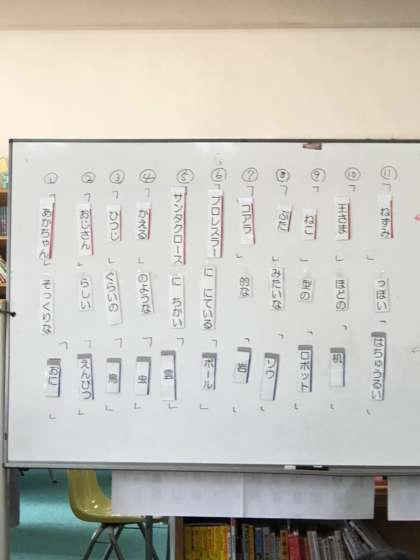 ① 「あかちゃん」 そっくりな 「おに」
② 「おじさん」 らしい 「えんぴつ」
③ 「ひつじ」 ぐらいの 「鳥」
④ 「かえる」 のような 「虫」
⑤ 「サンタクロース」 に ちかい 「雲」
⑥ 「プロレスラー」 に にている 「ボール」
⑦ 「コアラ」 的な 「岩」
⑧ 「ぶた」 みたいな 「ゾウ」
⑨ 「ねこ」 型の 「ロボット」
⑩ 「王さま」 ほどの 「机」
⑪ 「ねずみ」 っぽい 「はちゅうるい」